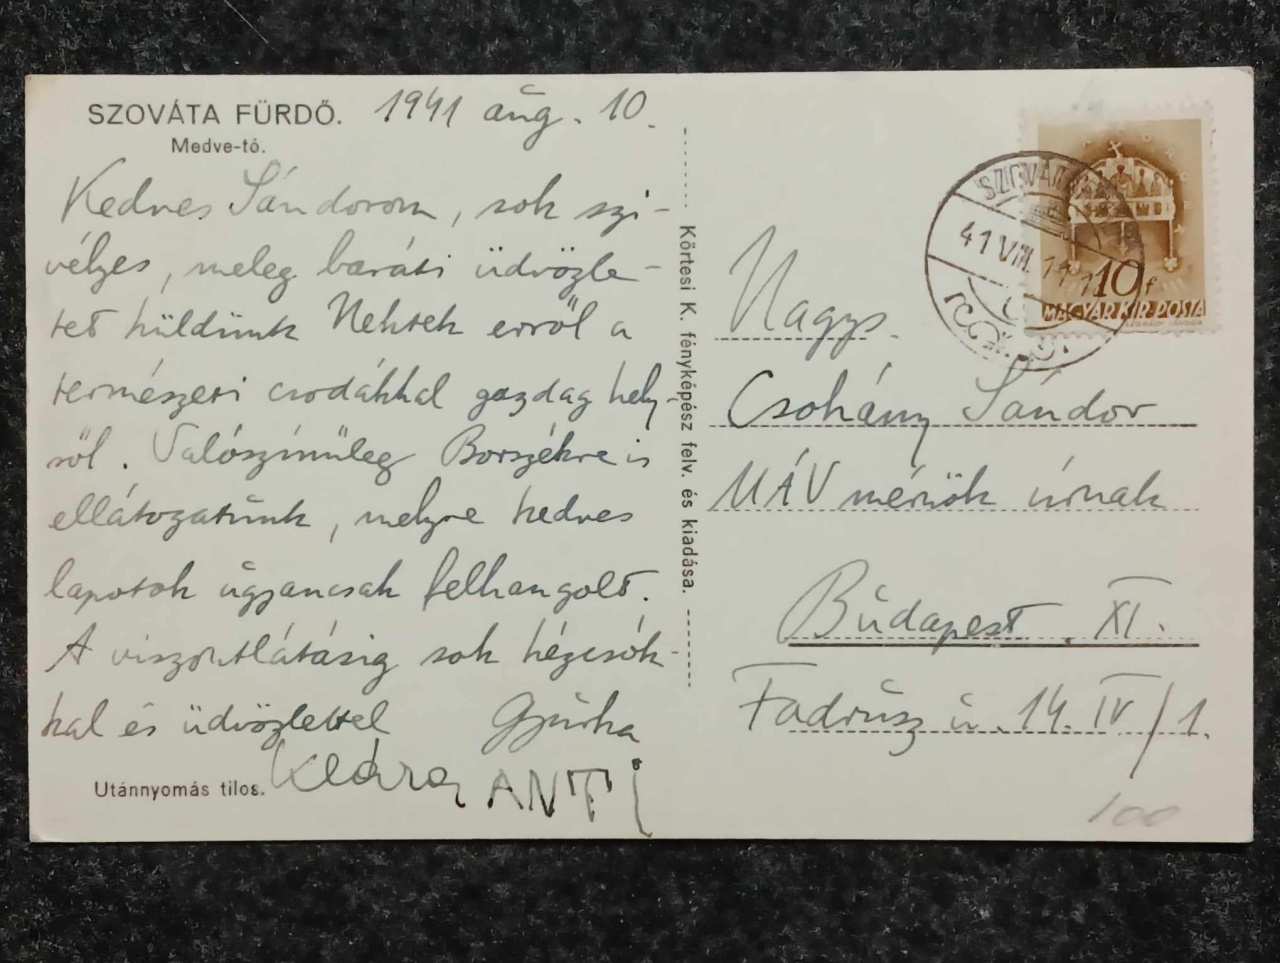 SZOVÁTA FÜRDŐ.
Medve-tó.
1941 aug. 10.
Kedves Sándorom, sok szi-
vélyes, meleg baráti üdvözle-
tet küldünk Nektek erről a
természeti csodákkal gazdag hely-
ről. Valószínűleg Borszékre is
ellátogatunk, melyre kedves
lapotok ugyancsak felhangolt.
A viszontlátásig sok kézcsók-
kal és üdvözlettel Gyurka
Klára ANTI
Utánnyomás tilos.
Körtesi K. fényképész felv. és kiadása.
41 VIII. 11
10 f
MAGYAR KIR. POSTA
Nagys.
Csohány Sándor
MÁV mérnök úrnak
Budapest. XI.
Fadrusz u. 14. IV/1.
100